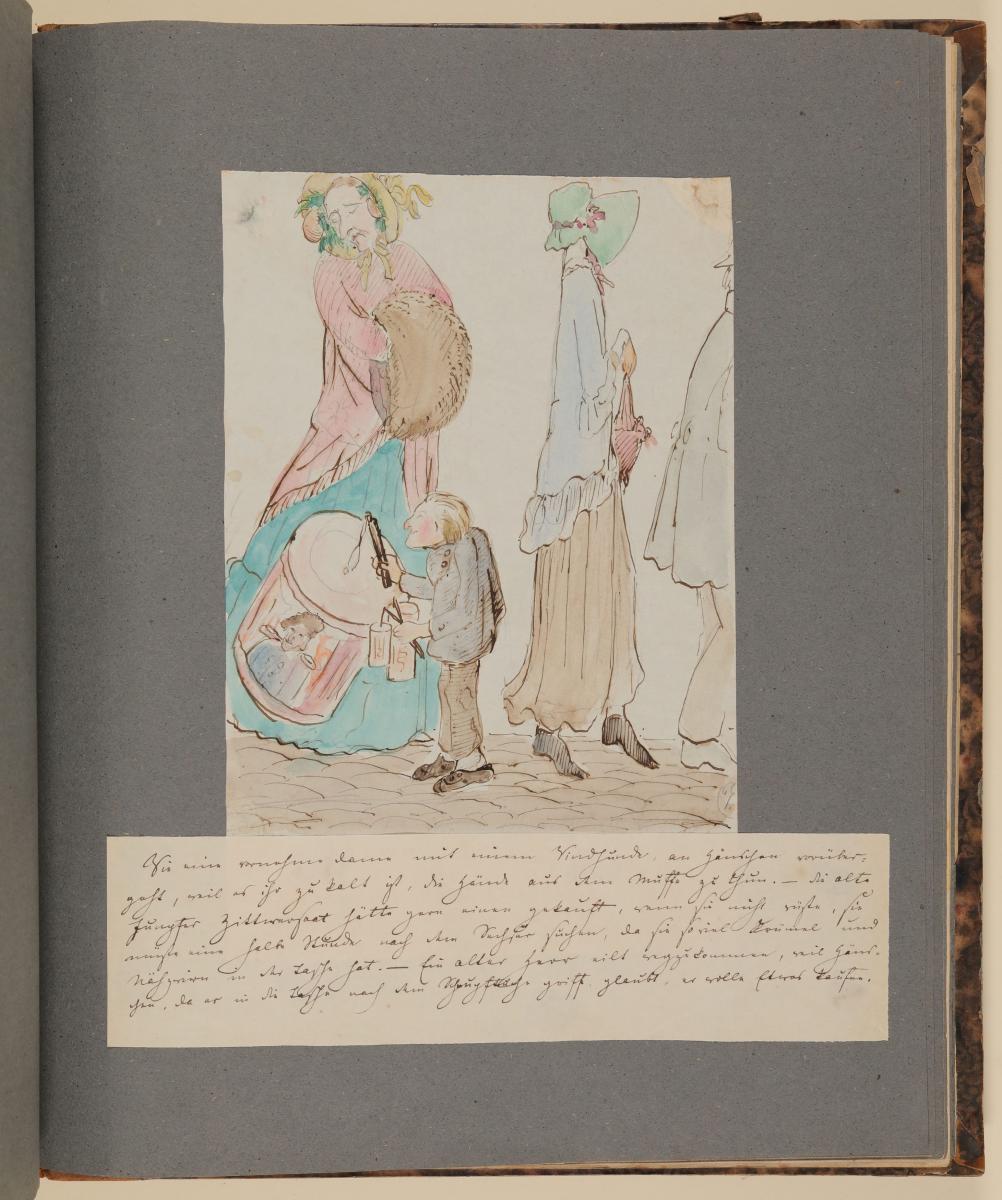 Wie eine vornehme Dame mit einem Windhunde, an Hänschen vorüber=
geht, weil es ihr zu kalt ist, die Hände aus dem Muffe zu thun. — die alte
Jungfer Zittwersaat hätte gern einen gekauft, wenn sie nicht wüßte, sie
müßte eine halbe Stunde nach dem Sechser suchen, da sie so viel Krümel und
Nähzwirn in der Tasche hat. — Ein alter Herr eilt wegzukommen, weil Häns-
chen, da er in die Tasche nach dem Schnupftuche griff, glaubt, er wolle Etwas kaufen.